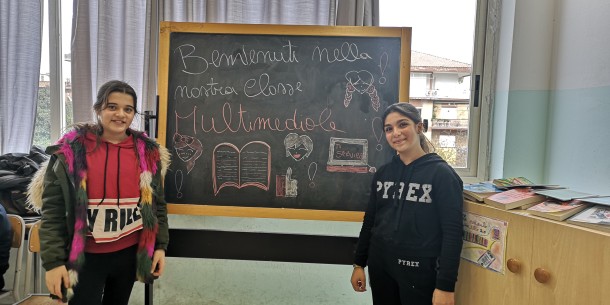 Benvenuti nella
nostra classe
Multimediale
PYREX
PYREX